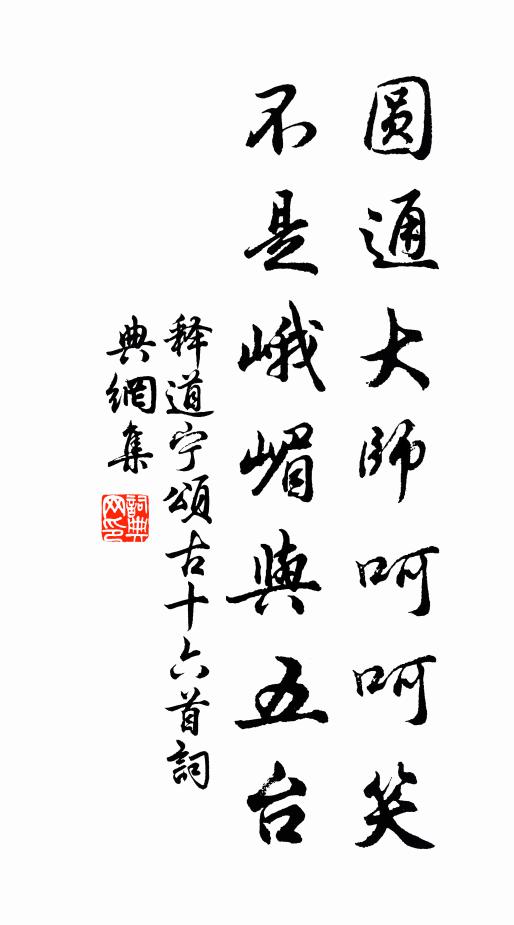 圆通大师呵呵笑
不是峨嵋與五台
释道宁頌古十六首詞
典網集
詞典网印